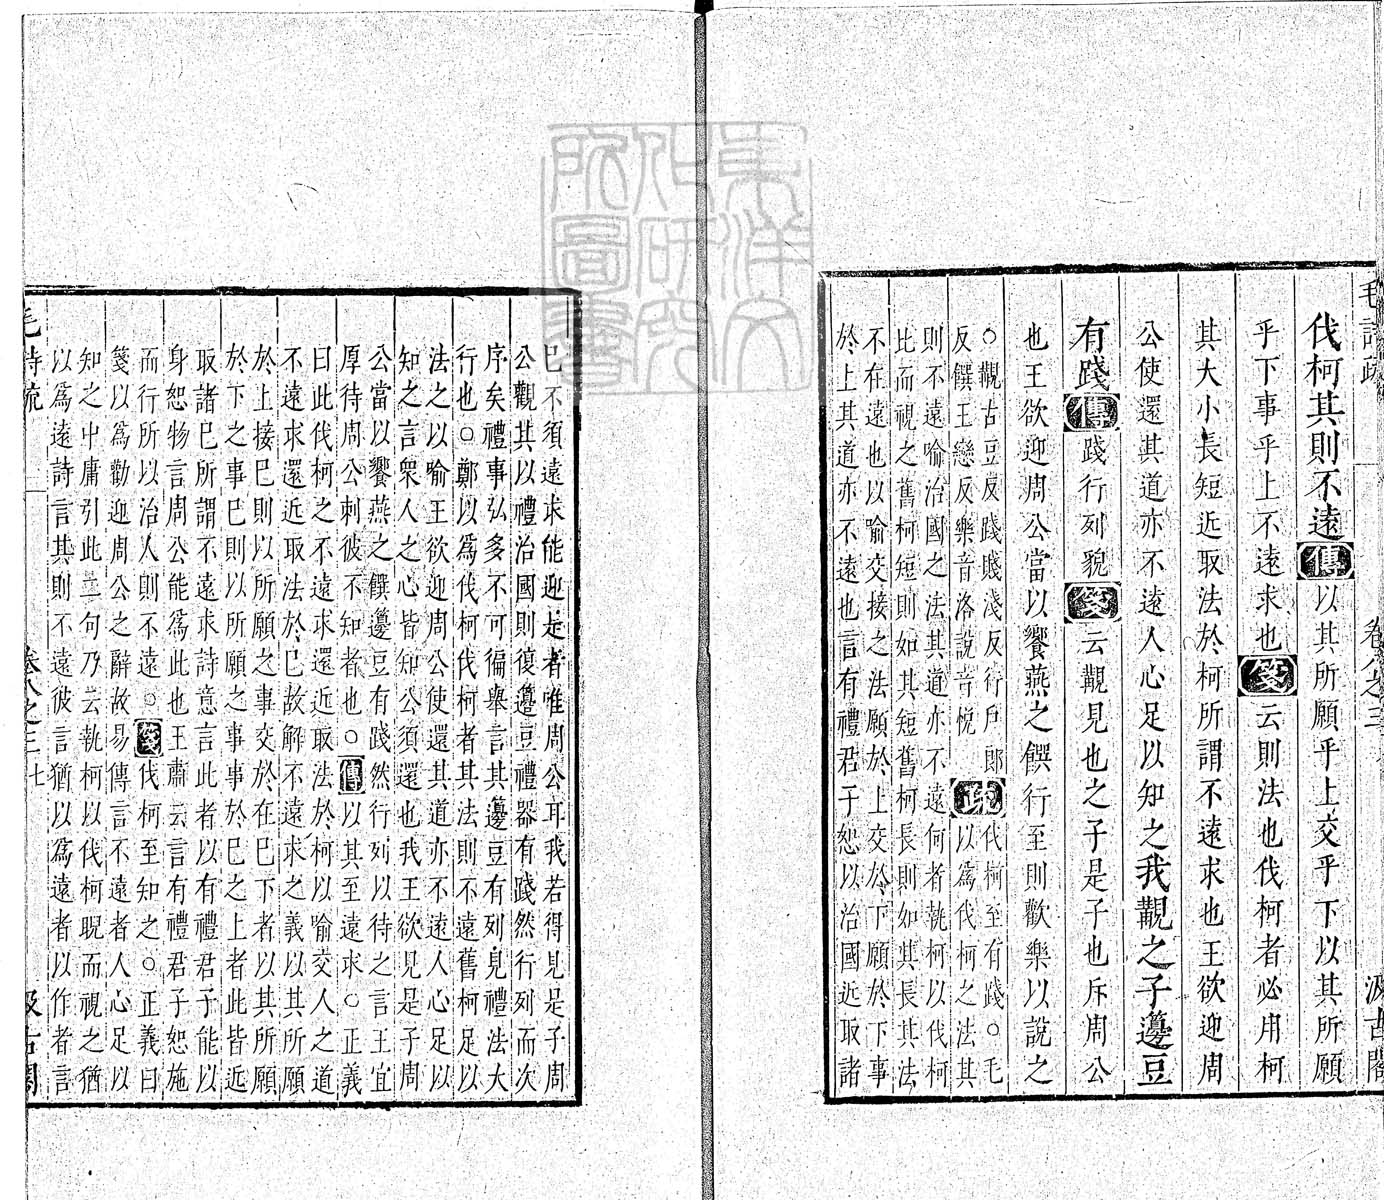 毛詩疏 卷八之三 汲古閣
伐柯其則不遠傳以其所願乎上交乎下以其所願
乎下事乎上不遠求也箋云則法也伐柯者必用柯
其大小長短近取法於柯所謂不遠求也王欲迎周
公使還其道亦不遠人心足以知之我覯之子籩豆
有踐傳踐行列貌箋云覯見也之子是子也斥周公
也王欲迎周公當以饗燕之饌行至則歡樂以說之
○覯古豆反踐賤淺反行戶郎
反饌王戀反樂音洛說音悅疏伐柯至有踐○毛
以為伐柯之法其
則不遠喻治國之法其道亦不遠何者執柯以伐柯
比而視之舊柯短則如其短舊柯長則如其長其法
不在遠也以喻交接之法願於上交於下願於下事
於上其道亦不遠也言有禮君子恕以治國近取諸
已不須遠求能迎是者唯周公耳我若得見是子周
公觀其以禮治國則復籩豆禮器有踐然行列而次
序矣禮事弘多不可徧舉言其籩豆有列見禮法大
行也○鄭以為伐柯伐柯者其法則不遠舊柯足以
法之以喻王欲迎周公使還其道亦不遠人心足以
知之言衆人之心皆知公須還也我王欲見是子周
公當以饗燕之饌籩豆有踐然行列以待之言王宜
厚待周公刺彼不知者也○傳以其至遠求○正義
曰此伐柯之不遠求還近取法於柯以喻交人之道
不遠求還近取法於已故解不遠求之義以其所願
於上接巳則以所願之事交於在已下者以其所願
於下之事已則以所願之事事於已之上者此皆近
取諸已所謂不遠求詩意言此者以有禮君子能以
身恕物言周公能為此也王肅云言有禮君子恕施
而行所以治人則不遠○箋伐柯至知之○正義曰
箋以為勸迎周公之辭故易傳言不遠者人心足以
知之中庸引此二句乃云執柯以伐柯睨而視之猶
以為遠詩言其則不遠彼言猶以為遠者以作者言
毛詩疏 卷八之三 七 汲古閣
東洋文化研究所圖書